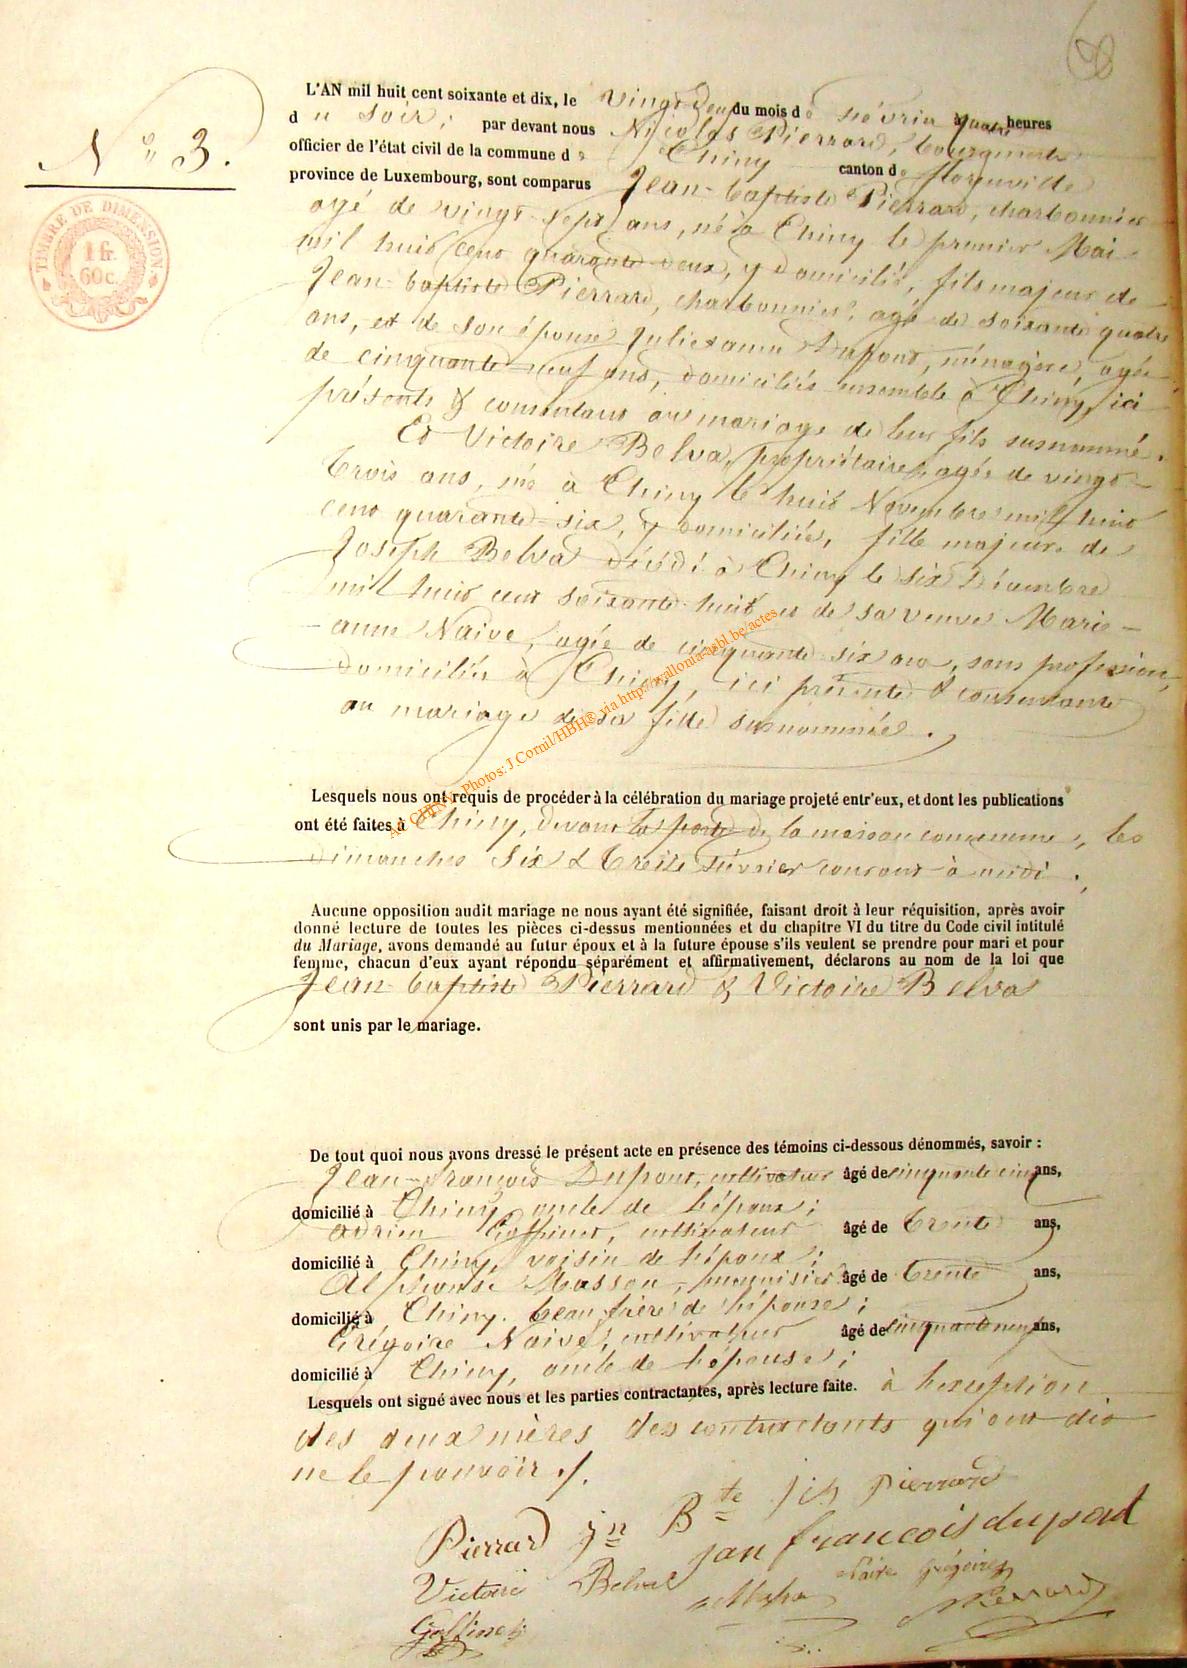 68
N° 3.
TIMBRE DE DIMENSION.
1 fr.
60 c.
L'AN mil huit cent soixante et dix, le vingt deux du mois de février à quatre heures
du soir, par devant nous Nicolas Pierrard, bourgmestre
officier de l'état civil de la commune de Chiny canton de florenville
province de Luxembourg, sont comparus Jean-baptiste Pierrard, charbonnier
agé de vingt-sept ans, né à Chiny le premier Mai
mil huit cent quarante deux, y domicilié, fils majeur de
Jean-baptiste Pierrard, charbonnier, agé de soixante quatre
ans, et de son épouse Dupont, ménagère, agée
de cinquante-neuf ans, domiciliés ensemble à Chiny, ici
présents & consentant au mariage de leur fils susnommé.
Et Victoire Belva, propriétaire, agée de vingt-
trois ans, née à Chiny le huit Novembre mil huit
cent quarante-six, y domiciliée, fille majeure de
Joseph Belva décédé à Chiny le six Décembre
mil huit cent soixante-huit et de sa veuve Marie-
anne Naive, agée de cinquante-six ans, sans profession,
domiciliée à Chiny, ici présente & consentante
au mariage de sa fille susnommée.
AC CHINY - Photos: J.Cornil/HBH® via http://wallonia-asbl.be/actes
Lesquels nous ont requis de procéder à la célébration du mariage projeté entr'eux, et dont les publications
ont été faites à Chiny, devant la porte de la maison commune, les
dimanches Six & treize février courant à midi.
Aucune opposition audit mariage ne nous ayant été signifiée, faisant droit à leur réquisition, après avoir
donné lecture de toutes les pièces ci-dessus mentionnées et du chapitre VI du titre du Code civil intitulé
du Mariage, avons demandé au futur époux et à la future épouse s'ils veulent se prendre pour mari et pour
femme, chacun d'eux ayant répondu séparément et affirmativement, déclarons au nom de la loi que
Jean-baptiste Pierrard & Victoire Belva
sont unis par le mariage.
De tout quoi nous avons dressé le présent acte en présence des témoins ci-dessous dénommés, savoir :
Jean-françois Dupont, cultivateur âgé de cinquante cinq ans,
domicilié à Chiny, oncle de l'époux;
adrien Goffinet, cultivateur âgé de trente ans,
domicilié à Chiny, voisin de l'époux;
Alphonse Masson, menuisier âgé de trente ans,
domicilié à Chiny, beau-frère de l'épouse;
Grégoire Naive, cultivateur âgé de cinquante neuf ans,
domicilié à Chiny, oncle de l'épouse;
Lesquels ont signé avec nous et les parties contractantes, après lecture faite. à l'exception
des deux mères des contractants qui ont dit
ne le pouvoir ./.
Pierrard Jn Bte Pierrard
jan francois dupont
Victoire Belva Naive Grégoire
Goffinet Pierrard